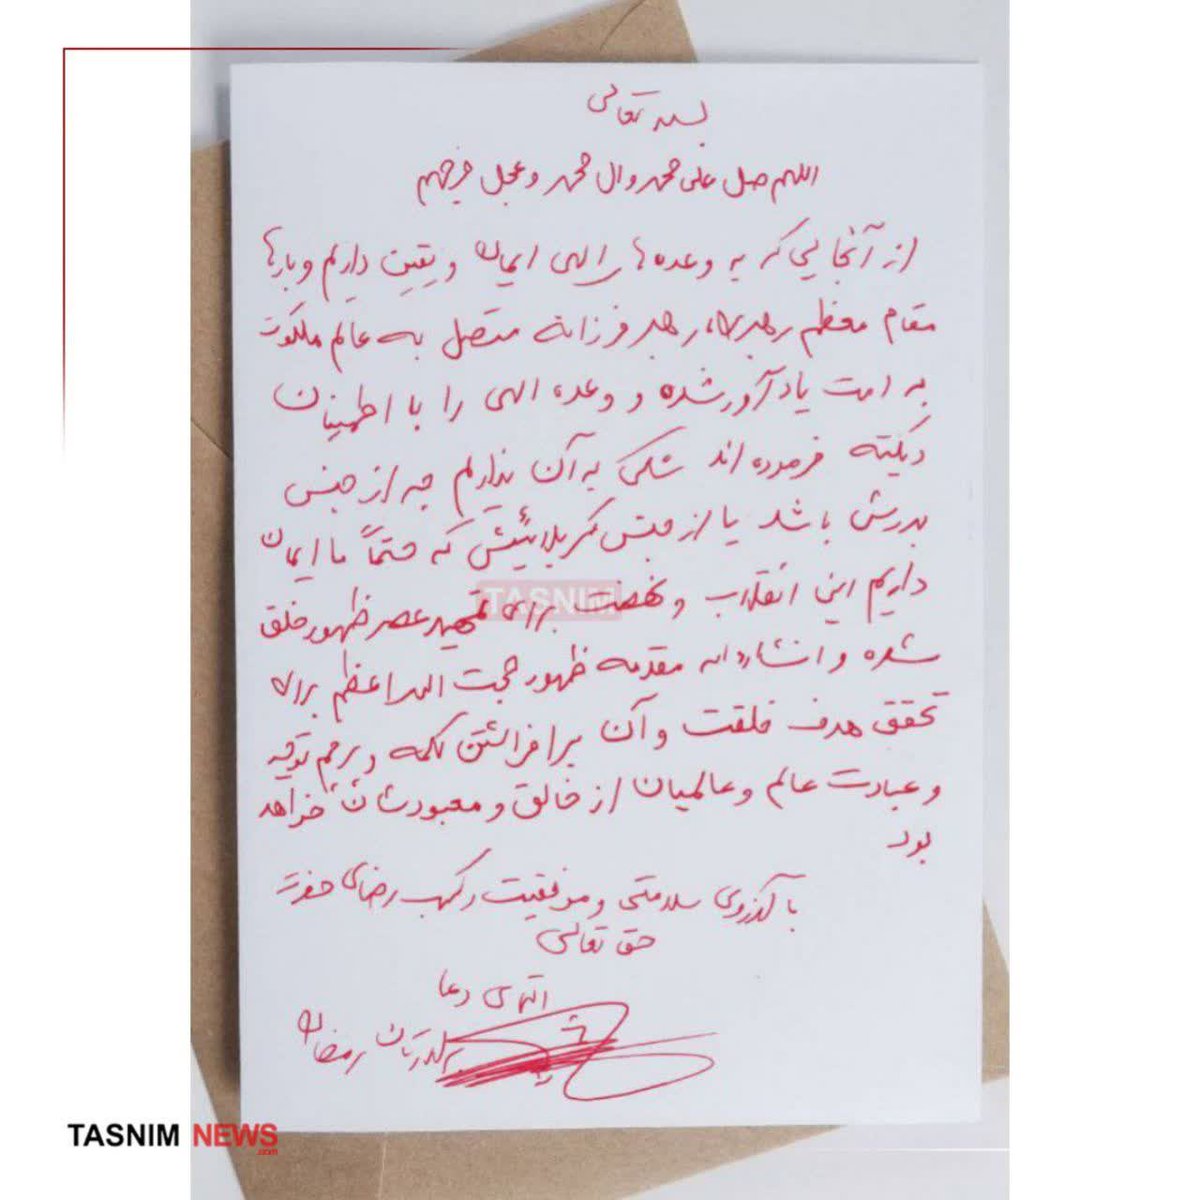 بسمه تعالی
اللهم صل علی محمد وال محمد وعجل فرجهم
از آنجایی که به وعده های الهی ایمان و یقین داریم و بارها
مقام معظم رهبری، رهبر فرزانه متصل به عالم ملکوت
به امت یادآور شده و وعده الهی را با اطمینان
فرموده اند شکی به آن نداریم چه از جنس
بدرش باشد یا از جنس کربلائیش که حتماً ما ایمان
داریم این انقلاب و نهضت برای تمهید عصر ظهور خلق
شده و انشاءالله مقدمه ظهور حجت الله اعظم برای
تحقق هدف خلقت و آن برافراشتن کلمه و پرچم توحید
و عبادت عالم و عالمیان از خالق و معبودشان خواهد
بود
با آرزوی سلامتی و موفقیت و کسب رضای حضرت
حق تعالی
التماس دعا
برادرتان رمضان
TASNIM
TASNIM NEWS
.com